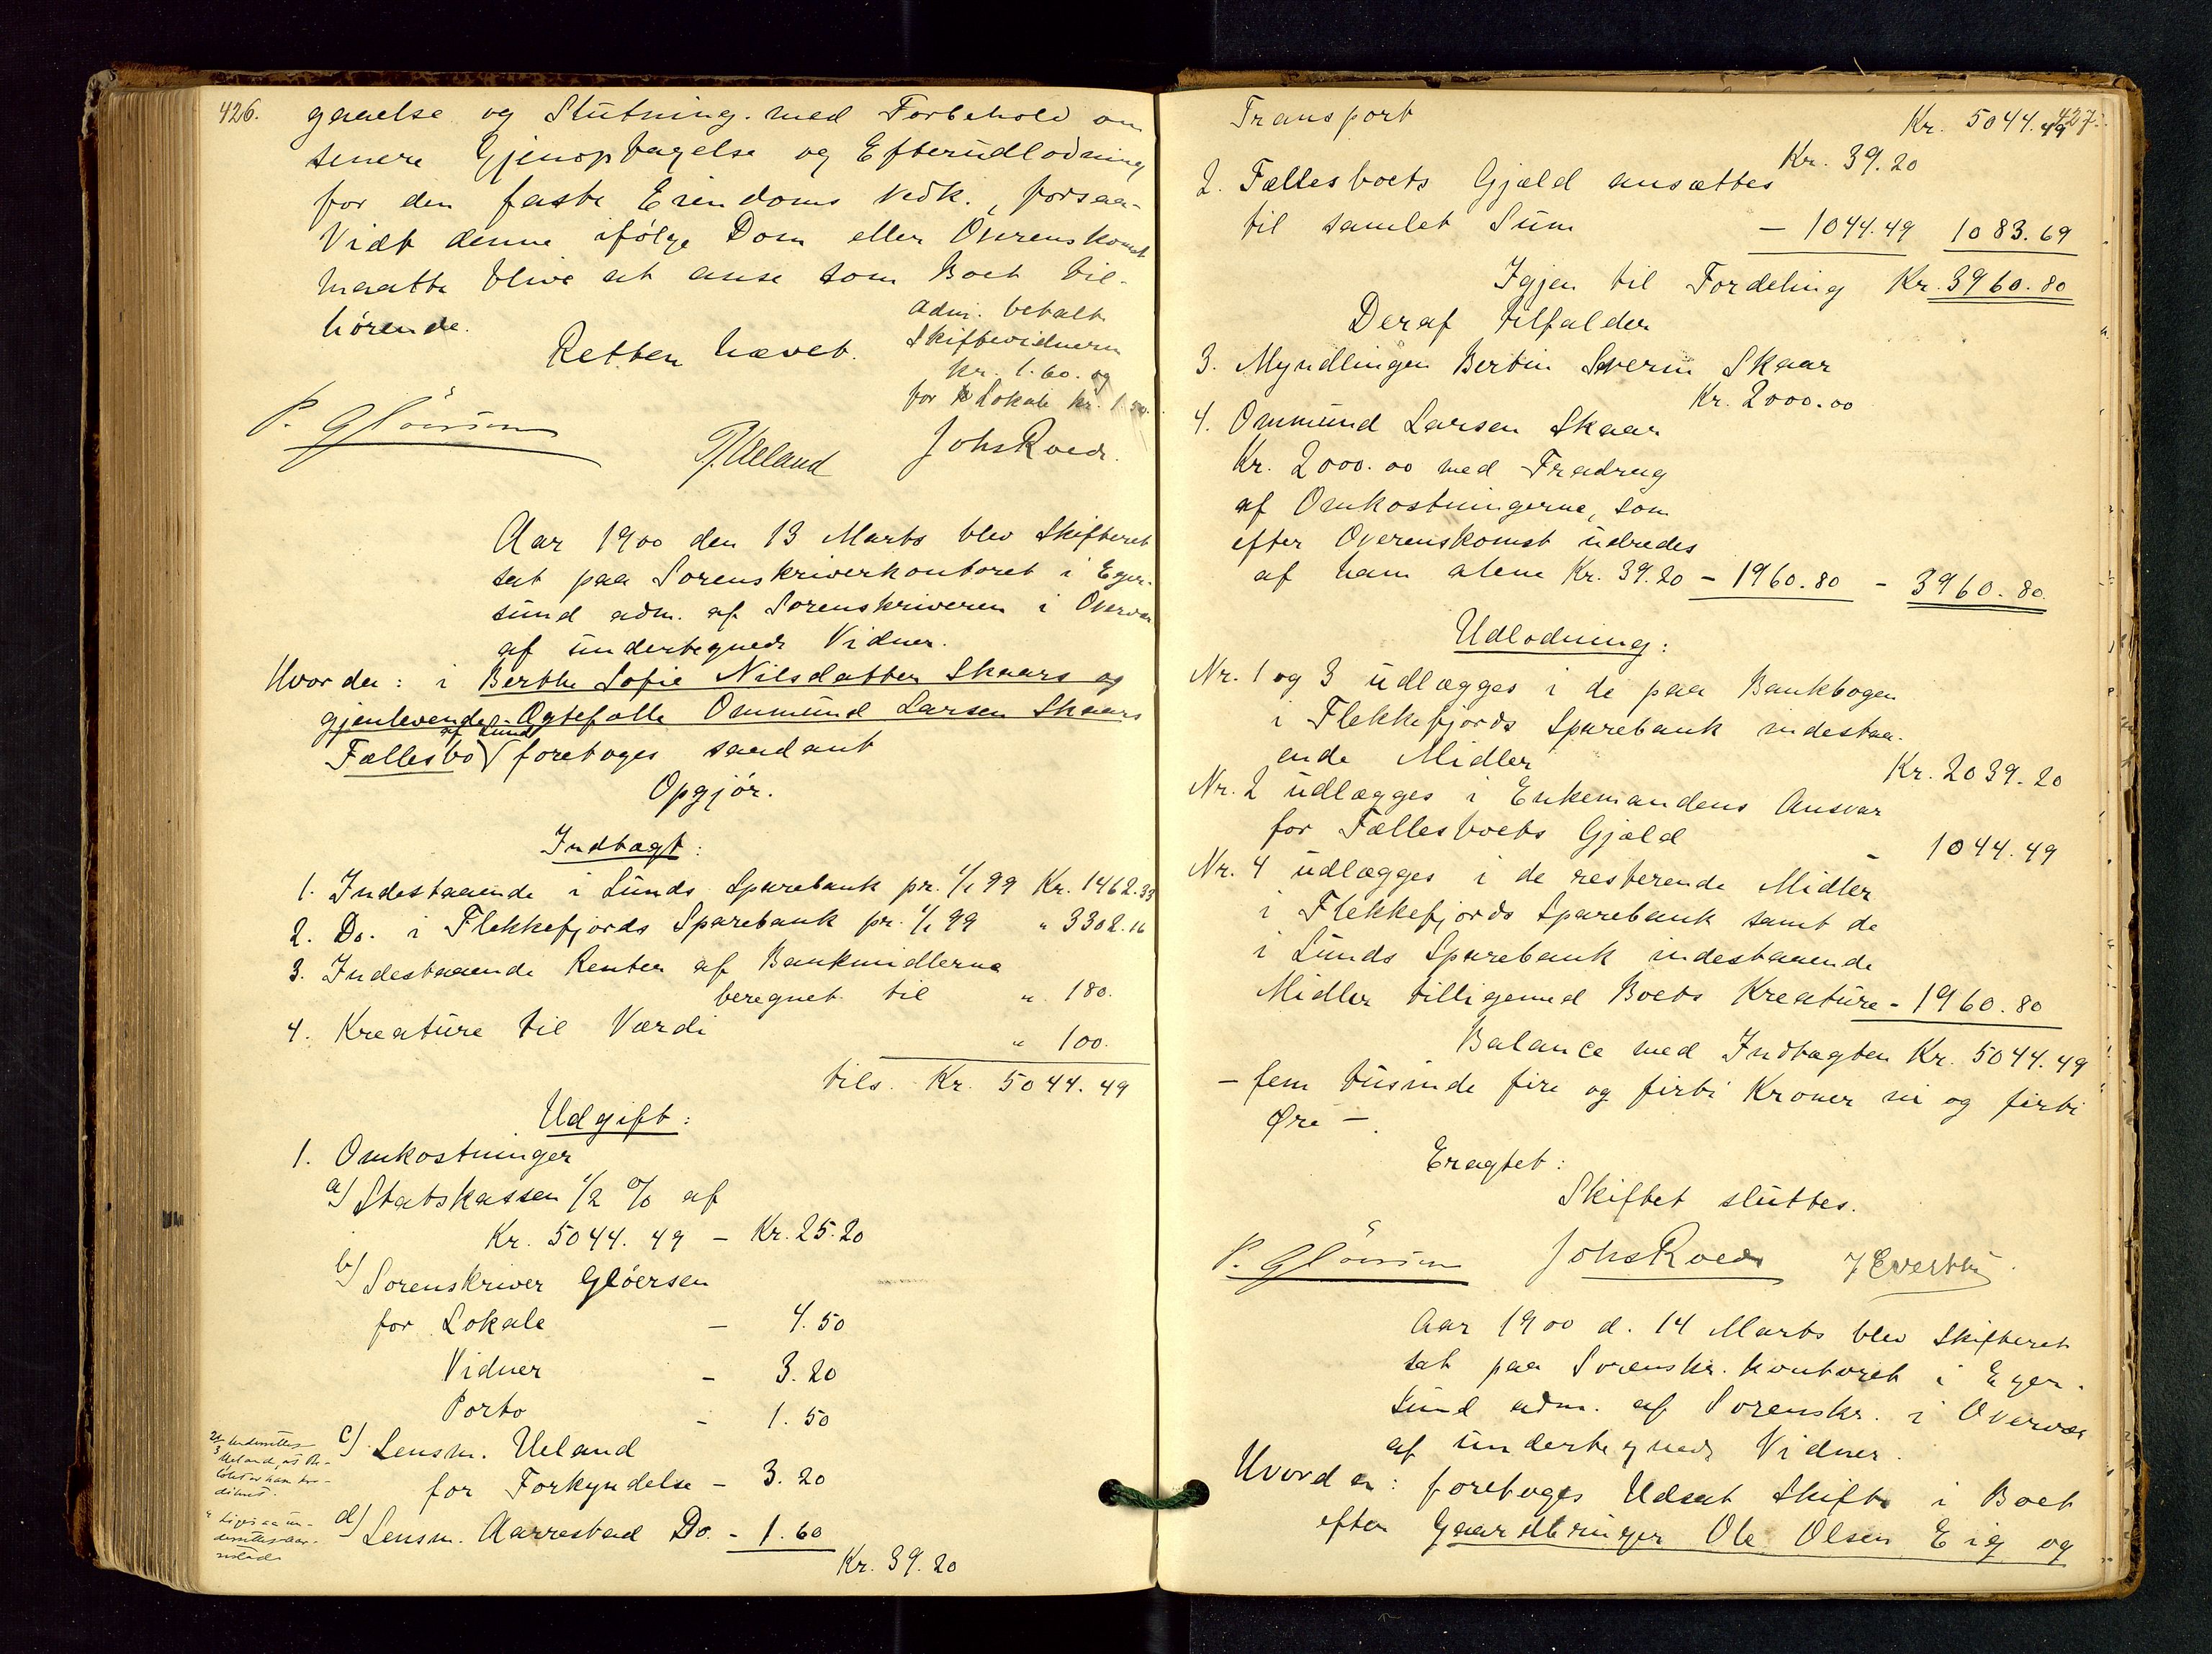 426.
gaaelse og Slutning med Forbehold om
senere Gjenoptagelse og Efterudlodning
for den faste Eiendoms Vedk., forsaa-
vidt denne ifølge Dom eller Overenskomst
maatte blive at anse som Boet til-
hørende.
Retten hævet.
Adm. betalt
Skiftevidnerne
Kr. 1.60. og
for Lokale Kr. 1.50.
P. Gløersen
T/Ueland
Johs Roed.
Aar 1900 den 13 Marts blev Skifteret
sat paa Sorenskriverkontoret i Eger-
sund adm. af Sorenskriveren i Overvær
af undertegnede Vidner.
Hvorda: i Berthe Sofie Nilsdatter Skaars og
gjenlevende Ægtefælle Ommund Larsen Skaars
af Lund
Fællesbo foretoges saadant
Opgjør.
Indtægt:
1. Indestaaende i Lunds Sparebank pr. 1/1 99 Kr. 1462.33
2. Do. i Flekkefjords Sparebank pr. 1/1 99 " 3302.16
3. Indestaaende Renter af Bankmidlerne
beregnet til " 180.
4. Kreature til Værdi " 100.
tils. Kr. 5044.49
Udgift:
1. Omkostninger
a) Statskassen 1/2 % af
Kr. 5044.49 - Kr. 25.20
b) Sorenskriver Gløersen
for Lokale - 4.50
Vidner - 3.20
Porto - 1.50
c) Lensm. Ueland
for Forkyndelse - 3.20
d) Lensm. Aarrestad Do. - 1.60
Kr. 39.20
427.
Transport Kr. 5044.49
Kr. 39.20
2. Fællesboets Gjæld ansættes
til samlet Sum - 1044.49 1083.69
Igjen til Fordeling Kr. 3960.80
Deraf tilfalder
3. Myndlingen Bertin Severin Skaar
Kr. 2000.00
4. Ommund Larsen Skaar
Kr. 2000.00 med Fradrag
af Omkostningerne, som
efter Overenskomst udredes
af ham alene Kr. 39.20 - 1960.80 - 3960.80
Udlodning:
Nr. 1 og 3 udlægges i de paa Bankbogen
i Flekkefjords Sparebank indestaa-
ende Midler Kr. 2039.20
Nr. 2 udlægges i Enkemandens Ansvar
for Fællesboets Gjæld - 1044.49
Nr. 4 udlægges i de resterende Midler
i Flekkefjords Sparebank samt de
i Lunds Sparebank indestaaende
Midler tilligemed Boets Kreature - 1960.80
Balance med Indtægten Kr. 5044.49
- fem tusinde fire og firti Kroner ni og firti
Øre -.
Eragtet:
Skiftet sluttes.
P. Gløersen
Johs Roed
Aar 1900 d. 14 Marts blev Skifteret
sat paa Sorenskr. kontoret i Eger-
sund adm. af Sorenskr. i Overvær
af undertegnede Vidner.
Hvorda: foretoges Udsat Skifte i Boet
efter Gaardbruger Ole Olsen Eig og